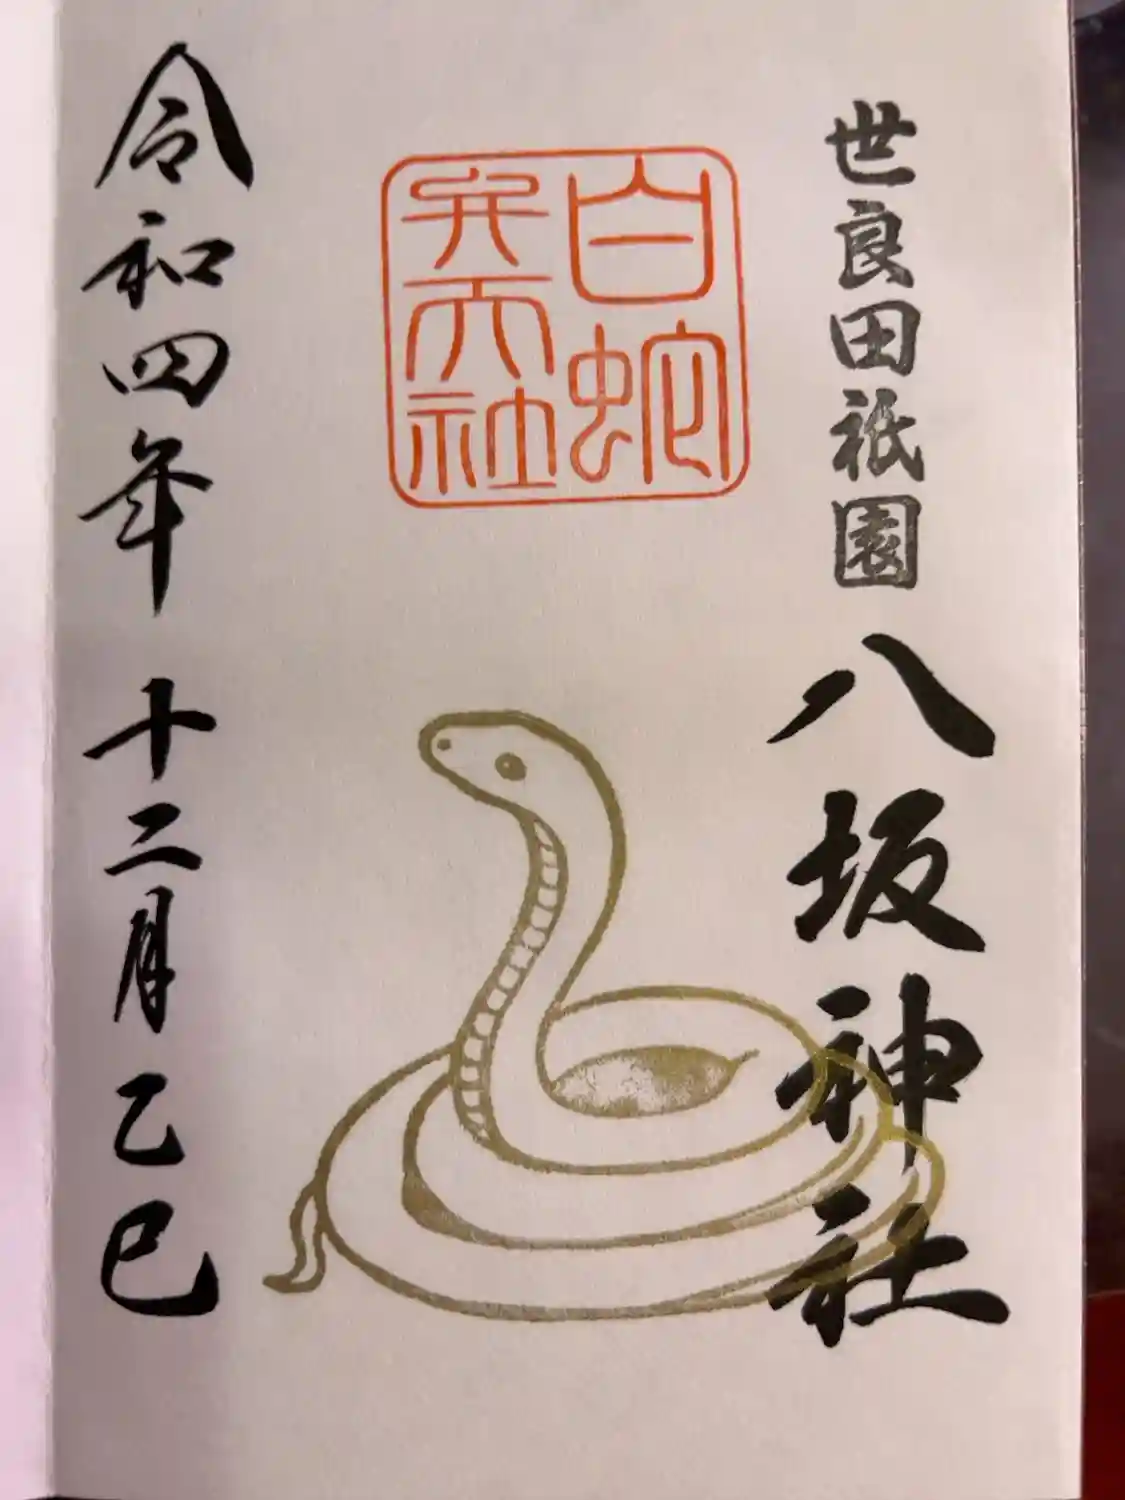 世良田祇園
八坂神社
白蛇
弁天社
令和四年
十二月
乙巳